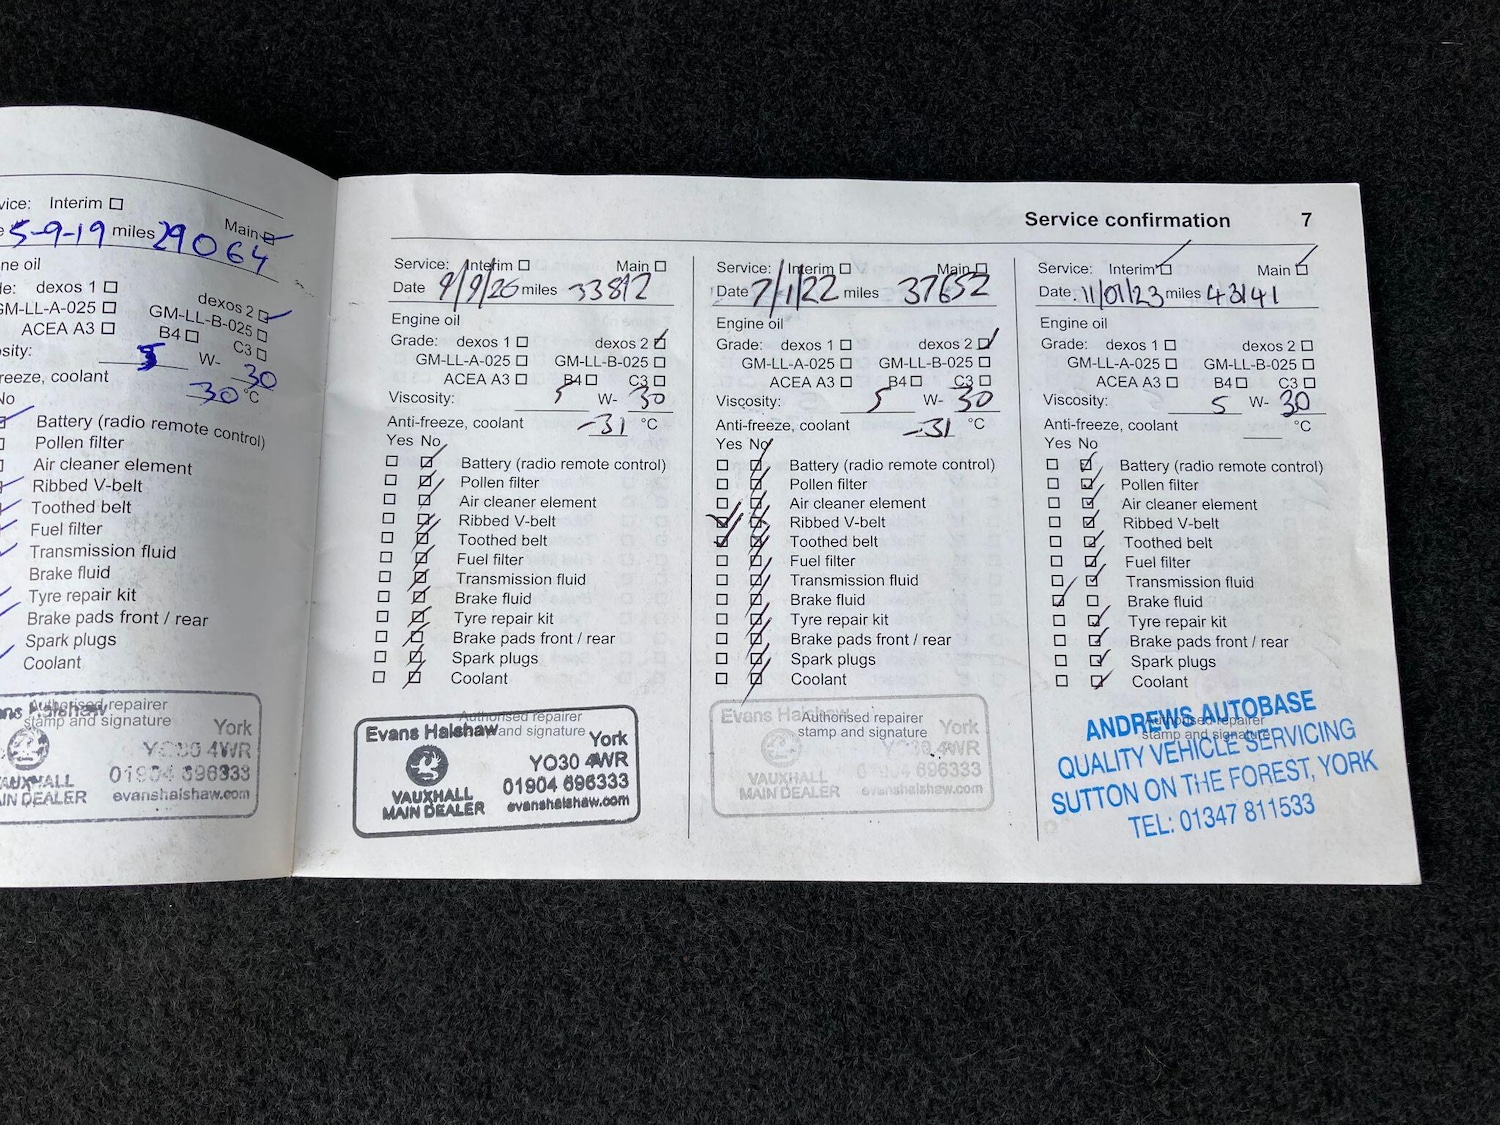 vice: Interim
Main
5-9-19 miles 29064
ne oil
le: dexos 1
dexos 2
GM-LL-A-025
GM-LL-B-025
ACEA A3
B4
C3
sity: 5 W- 30
reeze, coolant -30 °C
No
Battery (radio remote control)
Pollen filter
Air cleaner element
Ribbed V-belt
Toothed belt
Fuel filter
Transmission fluid
Brake fluid
Tyre repair kit
Brake pads front / rear
Spark plugs
Coolant
Authorised repairer
stamp and signature
York
YO30 4WR
01904 696333
VAUXHALL
MAIN DEALER
evanshalshaw.com
Service confirmation 7
Service: Interim Main
Date 9/9/20 miles 33812
Engine oil
Grade: dexos 1 dexos 2
GM-LL-A-025 GM-LL-B-025
ACEA A3 B4 C3
Viscosity: 5 W- 30
Anti-freeze, coolant -31 °C
Yes No
Battery (radio remote control)
Pollen filter
Air cleaner element
Ribbed V-belt
Toothed belt
Fuel filter
Transmission fluid
Brake fluid
Tyre repair kit
Brake pads front / rear
Spark plugs
Coolant
Authorised repairer
stamp and signature
Evans Halshaw
York
YO30 4WR
01904 696333
VAUXHALL
MAIN DEALER
evanshalshaw.com
Service: Interim Main
Date 7/1/22 miles 37652
Engine oil
Grade: dexos 1 dexos 2
GM-LL-A-025 GM-LL-B-025
ACEA A3 B4 C3
Viscosity: 5 W- 30
Anti-freeze, coolant -31 °C
Yes No
Battery (radio remote control)
Pollen filter
Air cleaner element
Ribbed V-belt
Toothed belt
Fuel filter
Transmission fluid
Brake fluid
Tyre repair kit
Brake pads front / rear
Spark plugs
Coolant
Authorised repairer
stamp and signature
Evans Halshaw
York
YO30 4WR
01904 696333
VAUXHALL
MAIN DEALER
evanshalshaw.com
Service: Interim Main
Date 11/01/23 miles 43141
Engine oil
Grade: dexos 1 dexos 2
GM-LL-A-025 GM-LL-B-025
ACEA A3 B4 C3
Viscosity: 5 W- 30
Anti-freeze, coolant °C
Yes No
Battery (radio remote control)
Pollen filter
Air cleaner element
Ribbed V-belt
Toothed belt
Fuel filter
Transmission fluid
Brake fluid
Tyre repair kit
Brake pads front / rear
Spark plugs
Coolant
Authorised repairer
stamp and signature
ANDREWS AUTOBASE
QUALITY VEHICLE SERVICING
SUTTON ON THE FOREST, YORK
TEL: 01347 811533